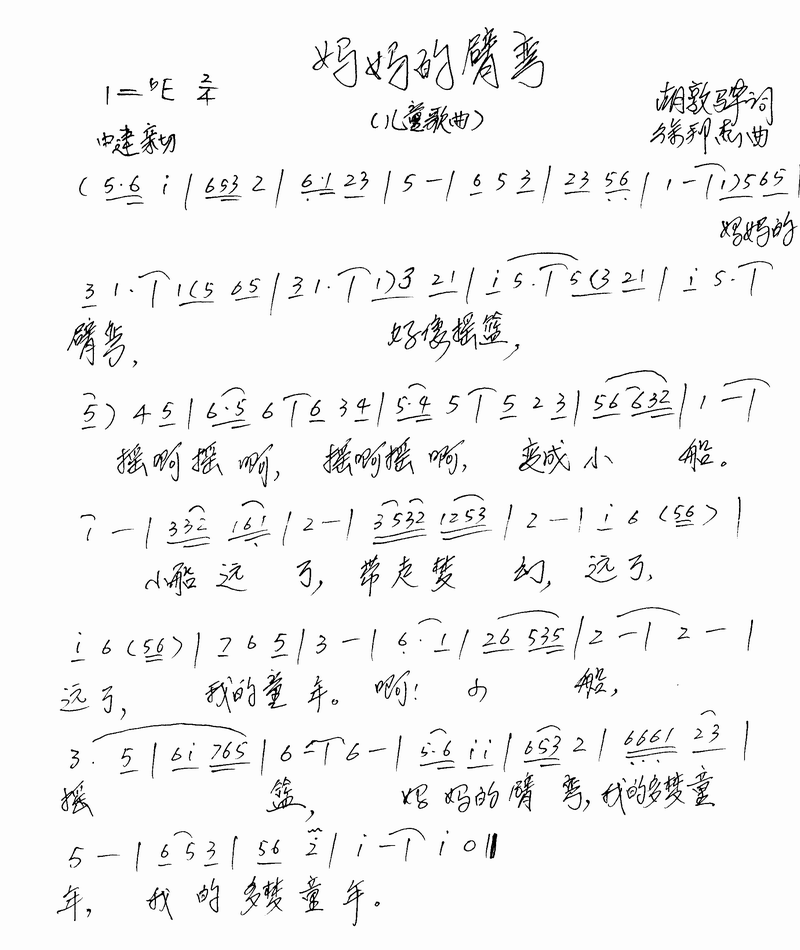 妈妈的臂弯
1=♭E 2/4
(儿童歌曲)
胡敦骅词
中速 亲切
曲
(5·6 i|653 2|6·1 23|5-|6 5 3|23 56|1-|1)565|
妈妈的
3 1·|1(5 65|31·|1)3 21|i 5·|5(3 21|i 5·|
臂弯, 好像摇篮,
5) 4 5|6·5 6|6 3 4|5·4 5|5 2 3|56 632|1 -|
摇啊摇啊, 摇啊摇啊, 变成小 船。
1 -|332 161|2-|3532 1253|2-|i 6 (56)|
小船远了, 带走梦幻, 远了,
i 6 (56)|7 6 5|3 -|6· 1|26 535|2 -|2 -|
远了, 我的童年。啊! 小 船,
3· 5|6i 765|6 -|6-|5·6 ii|653 2|6661 23|
摇 篮, 妈妈的臂弯,我的多梦童
5 -|6 5 3|56 2|i -|i 0‖
年, 我的多梦童年。